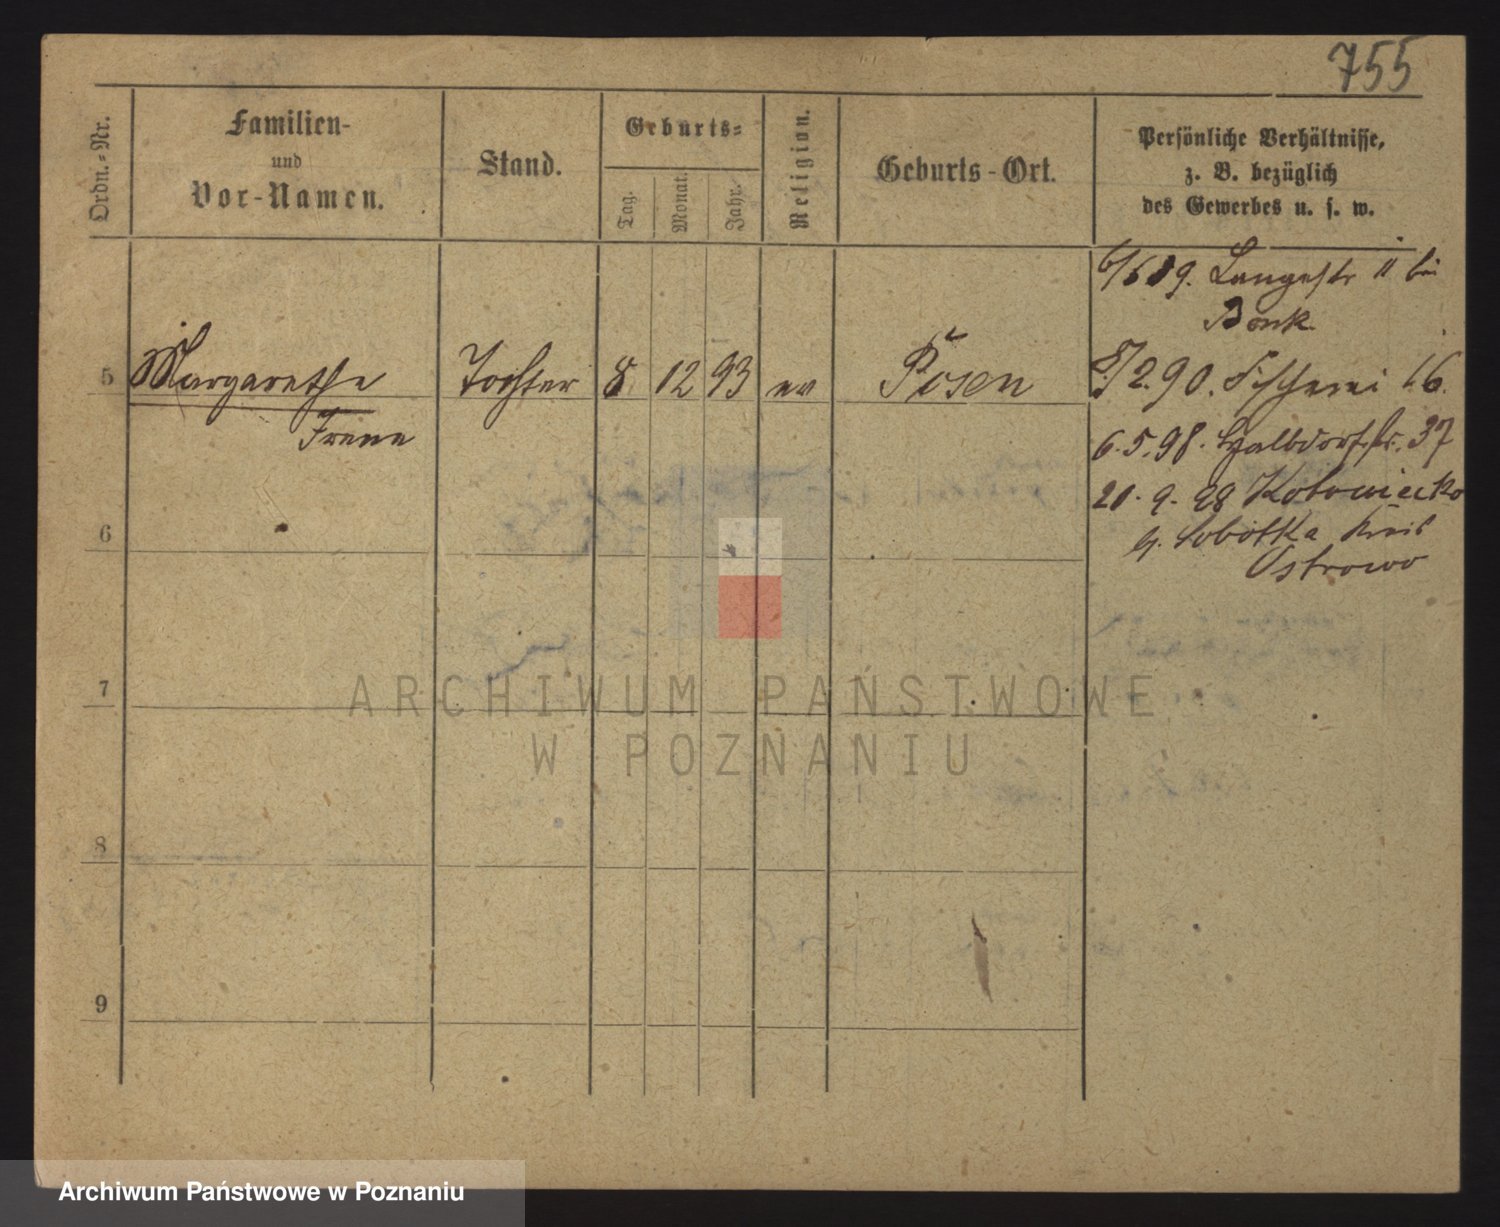 755
Ordn.-Nr.
Familien-
und
Vor-Namen.
Stand.
Geburts-
Tag.
Monat.
Jahr.
Religion.
Geburts-Ort.
Persönliche Verhältnisse,
z. B. bezüglich
des Gewerbes u. s. w.
6/6 89. Langestr 11 bei
Bonk.
5 Margarethe Tochter 8 12 93 ev Posen
Irene
8/2.90. Fischerei 16.
6.5.98. Halbdorfstr. 37
20.9.98 Kotowiecko
b. Sobotka Kreis
Ostrowo
6
7
8
9
ARCHIWUM PAŃSTWOWE
W POZNANIU
Archiwum Państwowe w Poznaniu